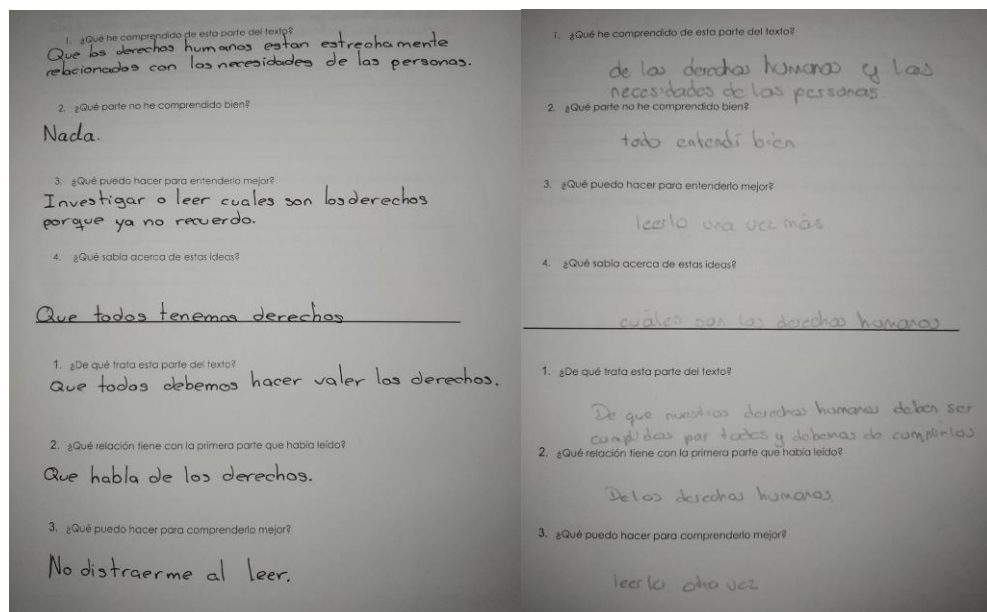 1. ¿Qué he comprendido de esta parte del texto?
Que los derechos humanos estan estrechamente
relacionados con las necesidades de las personas.
2. ¿Qué parte no he comprendido bien?
Nada.
3. ¿Qué puedo hacer para entenderlo mejor?
Investigar o leer cuales son los derechos
porque ya no recuerdo.
4. ¿Qué sabía acerca de estas ideas?
Que todos tenemos derechos
1. ¿De qué trata esta parte del texto?
Que todos debemos hacer valer los derechos.
2. ¿Qué relación tiene con la primera parte que había leído?
Que habla de los derechos.
3. ¿Qué puedo hacer para comprenderlo mejor?
No distraerme al leer.
1. ¿Qué he comprendido de esta parte del texto?
de los derechos humanos y las
necesidades de las personas
2. ¿Qué parte no he comprendido bien?
todo entendí bien
3. ¿Qué puedo hacer para entenderlo mejor?
leerlo una vez más
4. ¿Qué sabía acerca de estas ideas?
cuáles son los derechos humanos
1. ¿De qué trata esta parte del texto?
De que nuestros derechos humanos deben ser
cumplidos por todos y debemos de cumplirlos
2. ¿Qué relación tiene con la primera parte que había leído?
De los derechos humanos.
3. ¿Qué puedo hacer para comprenderlo mejor?
leerlo otra vez